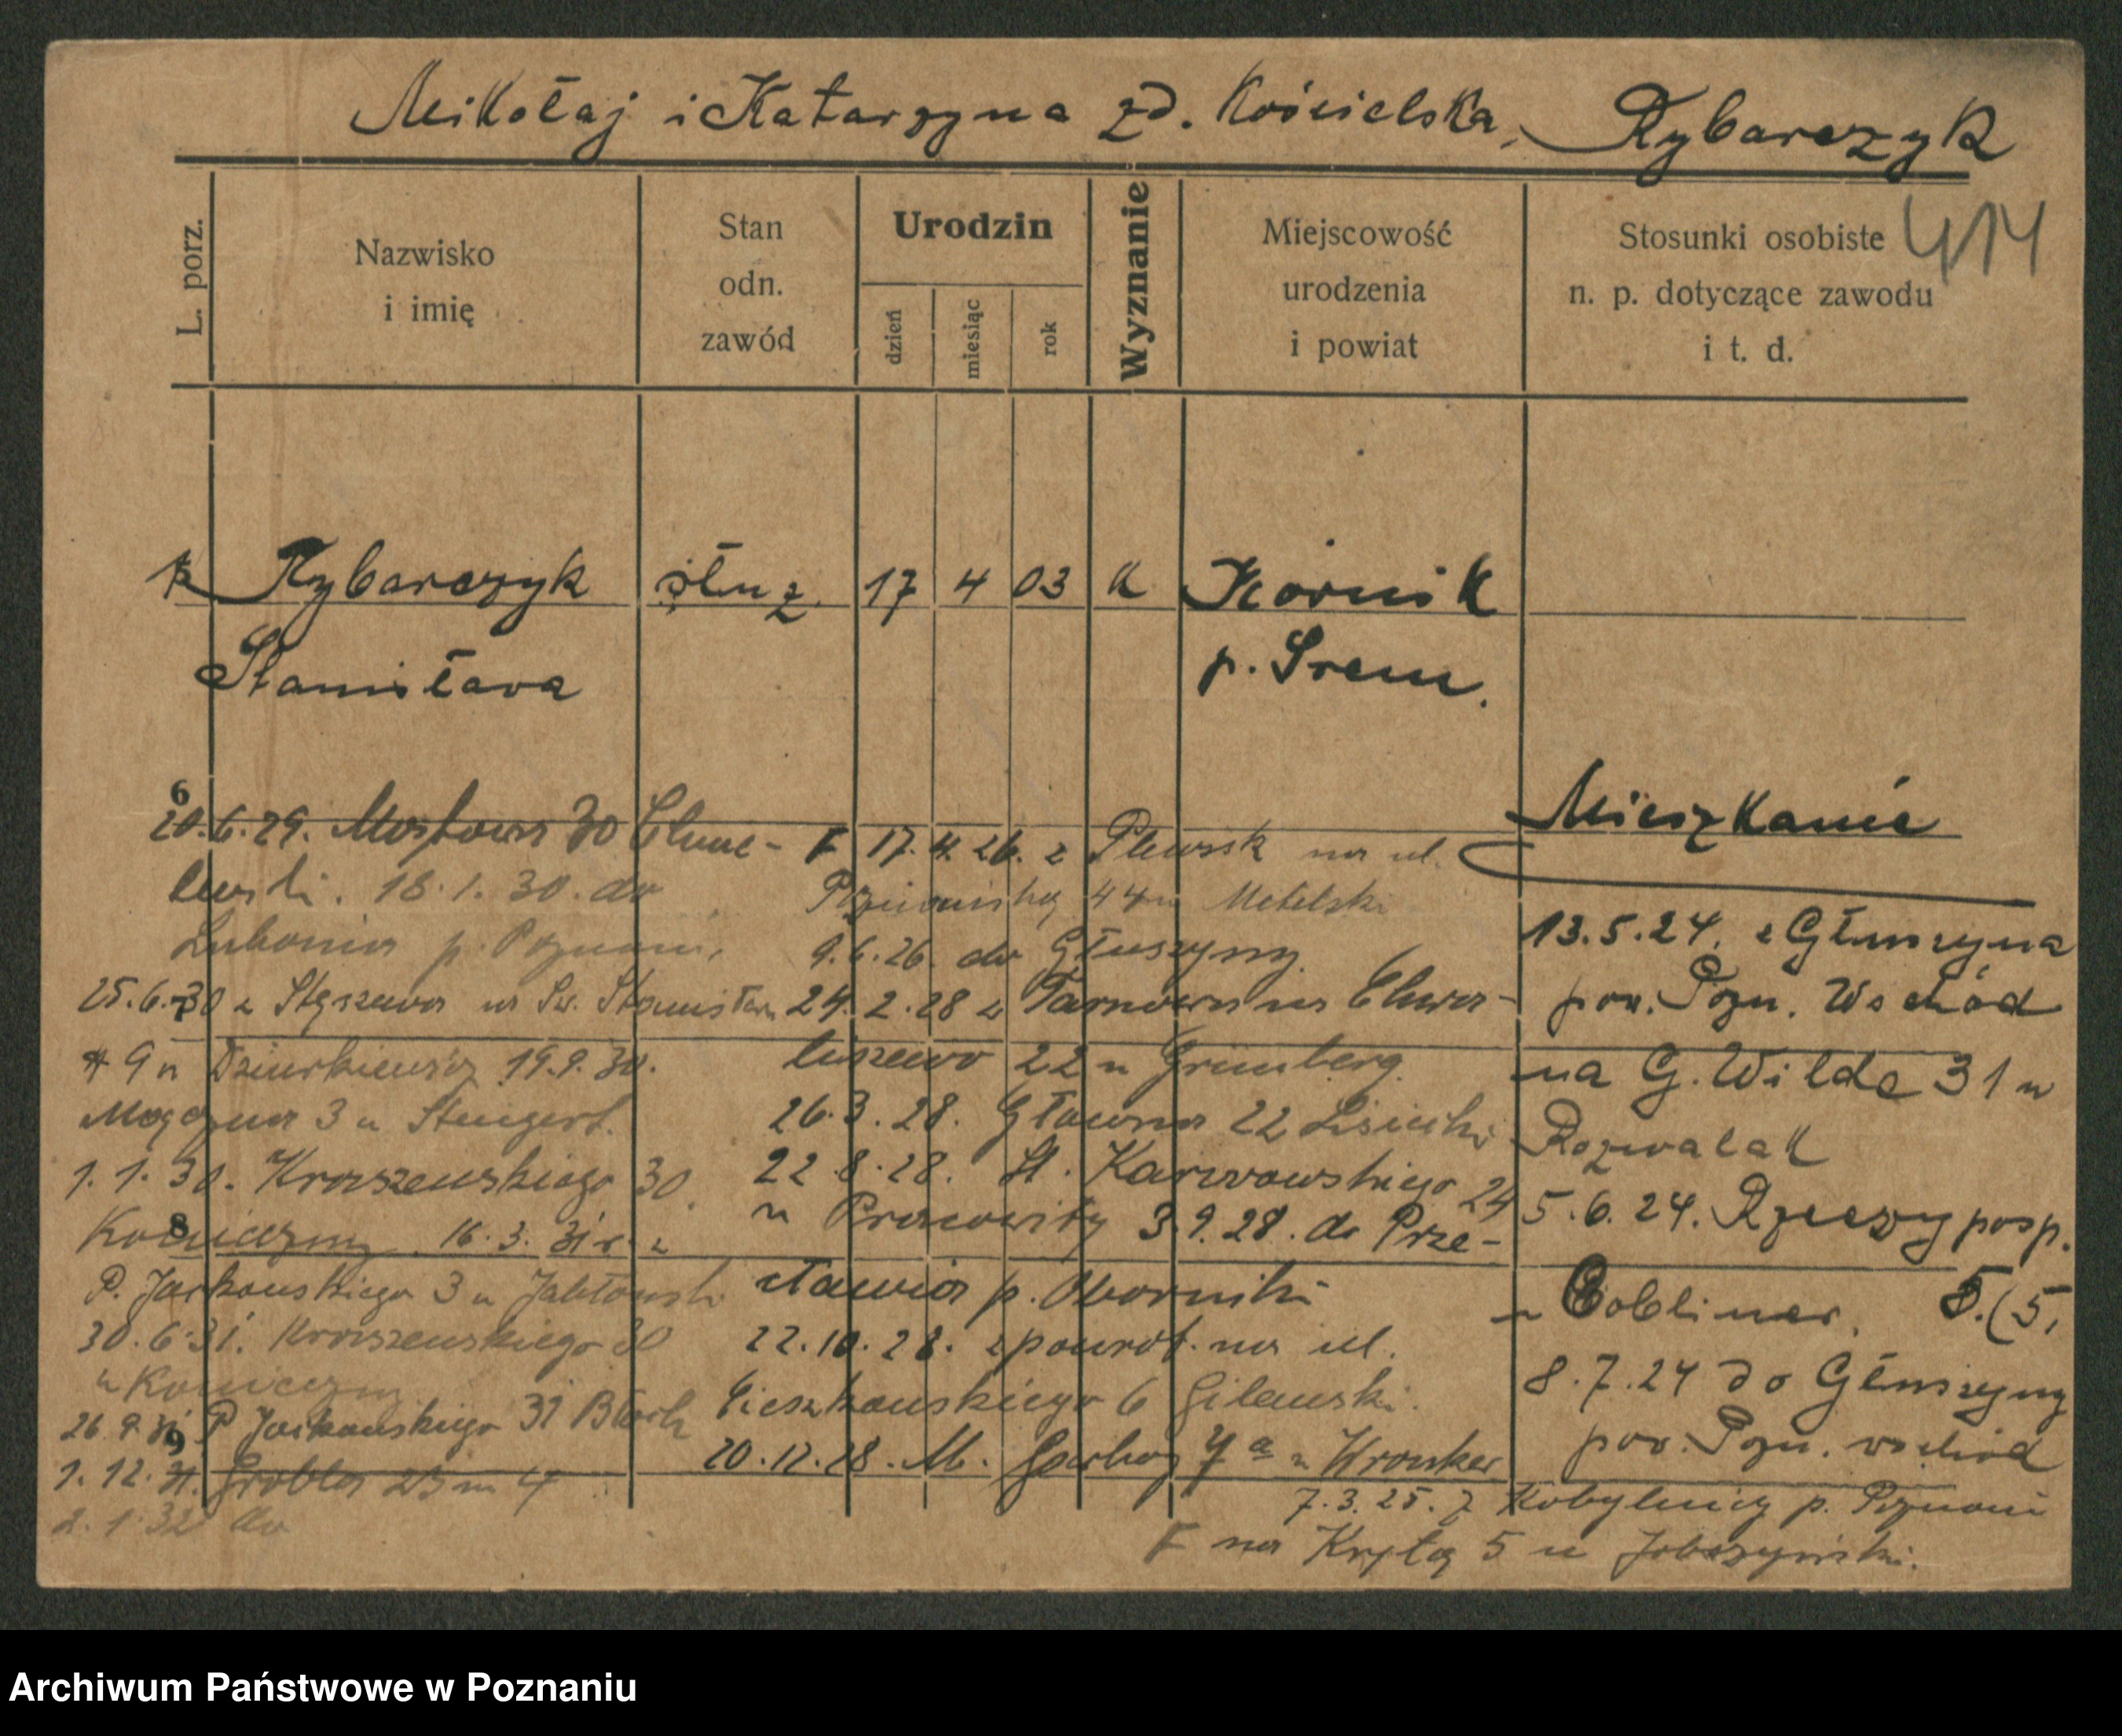 Mikołaj i Katarzyna zd. Kościelska, Rybarczyk
414
L. porz.
Nazwisko
i imię
Stan
odn.
zawód
Urodzin
dzień
miesiąc
rok
Wyznanie
Miejscowość
urodzenia
i powiat
Stosunki osobiste
n. p. dotyczące zawodu
i t. d.
Rybarczyk służ. 17 4 03 k Kórnik
Stanisława p. Śrem.
Mieszkanie
13.5.24. z Głuszyna
pow. Pozn. Wschód
na G. Wilda 31 u
Rozwalak
5.6.24. Rzeczyposp.
u Cobliner. 5.(5,
8.7.24 do Głuszyny
pow. Pozn. wschód
7.3.25. z Kobylnicy p. Poznań
F na Krętą 5 u
F 17.4.26. z na ul.
44 u Metelski
9.6.26. do Głuszyny.
24.2.28 z Tarnowa na Chwa-
liszewo 22 u Grünberg.
26.3.28. Główna 22
22.8.28. Karwowskiego 24
u 3.9.28. do Prze-
cławia p. Oborniki
22.10.28. z powrot. na ul.
Cieszkowskiego 6 Gilewski.
20.12.28. M. Garbary 7a u Kronker
6
20.6.29. Mostowa 30 Chmie-
lewski. 18.1.30. do
Lubonia p. Poznań,
25.6.30 z Stęszewa na Św. Stanisława
7
9 u 19.9.30.
3 u
1.1.30. Kraszewskiego 30.
8
16.3.31 r. z
P. Jackowskiego 3 u Jabłoński
30.6.31. Kraszewskiego 30
u
26.9.31 P Jackowskiego 31
9
1.12.31. Grobla 25 m 4
2.1.32 do
Archiwum Państwowe w Poznaniu